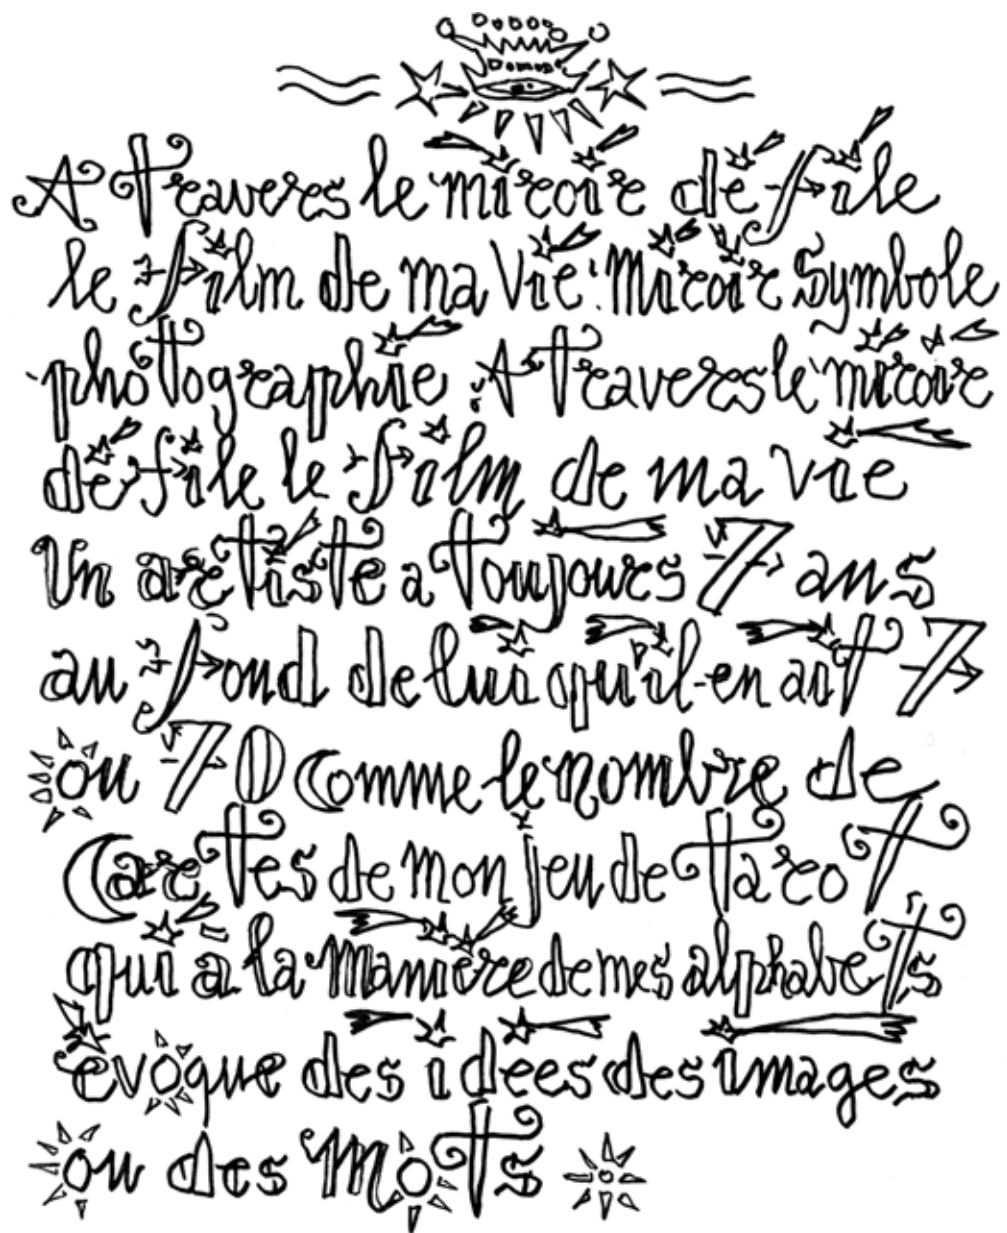 A travers le miroir défile
le film de ma vie : Miroir Symbole
photographie : A travers le miroir
défile le film de ma vie
Un artiste a toujours 7 ans
au fond de lui qu'il en ait 7
ou 70 comme le nombre de
Cartes de mon jeu de tarot
qui à la manière de mes alphabets
évoque des idées des images
ou des mots